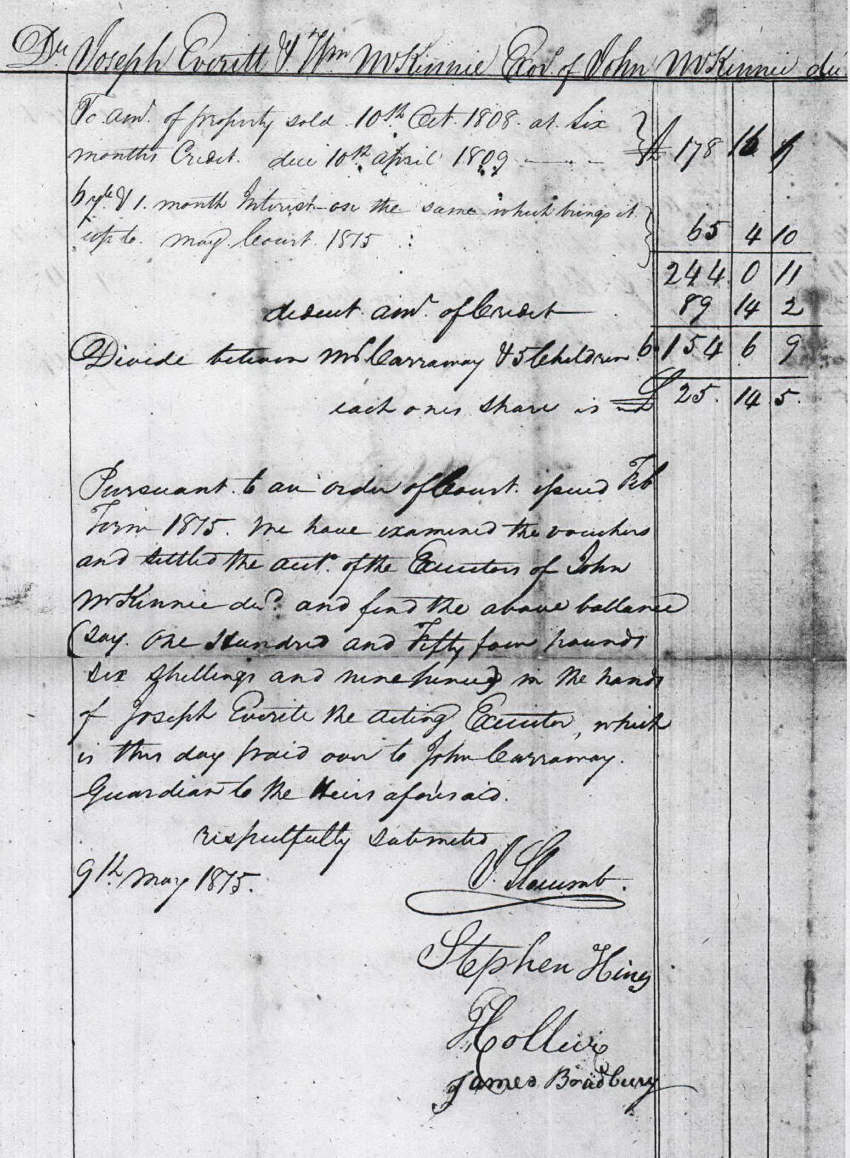 Dr. Joseph Everett & Wm McKinnie Exors of John McKinnie decd
To amt. of property sold 10th Oct. 1808. at Six £ 178 16 1
months Credit. due 10th April 1809
6 yrs & 1. month Interest on the same which brings it
up to. May Court. 1815 65 4 10
244 0 11
deduct amt. of Credit 89 14 2
Divide between Mrs Carraway & 5 Children 6. 154 6 9
each ones share is £ 25. 14 5.
Pursuant to an order of Court issued Feb
Term 1815. We have examined the vouchers
and settled the acct. of the Executors of John
McKinnie decd. and find the above ballance
(Say. One Hundred and Fifty four pounds
six shillings and nine pence) in the hands
of Joseph Everite the acting Executor, which
is this day paid over to John Carraway.
Guardian to the Heirs aforesaid.
respectfully submitted
9th May 1815.
J. Slocumb.
Stephen Hines
James Bradbury